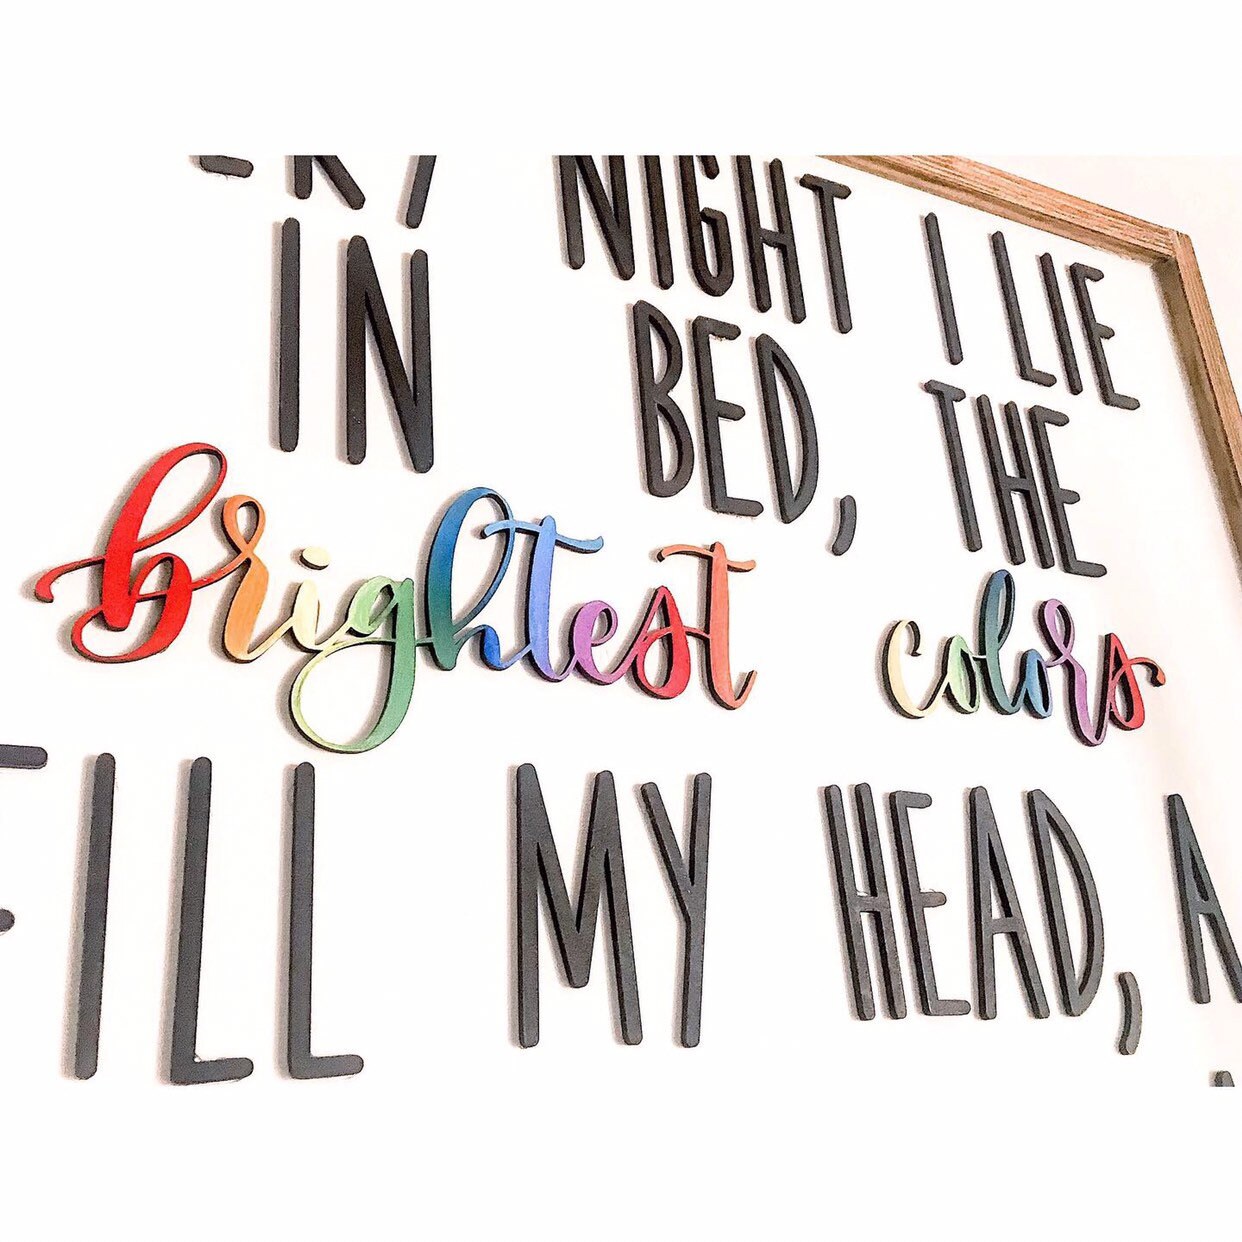 NIGHT I LIE
IN BED, THE
brightest colors
FILL MY HEAD, A